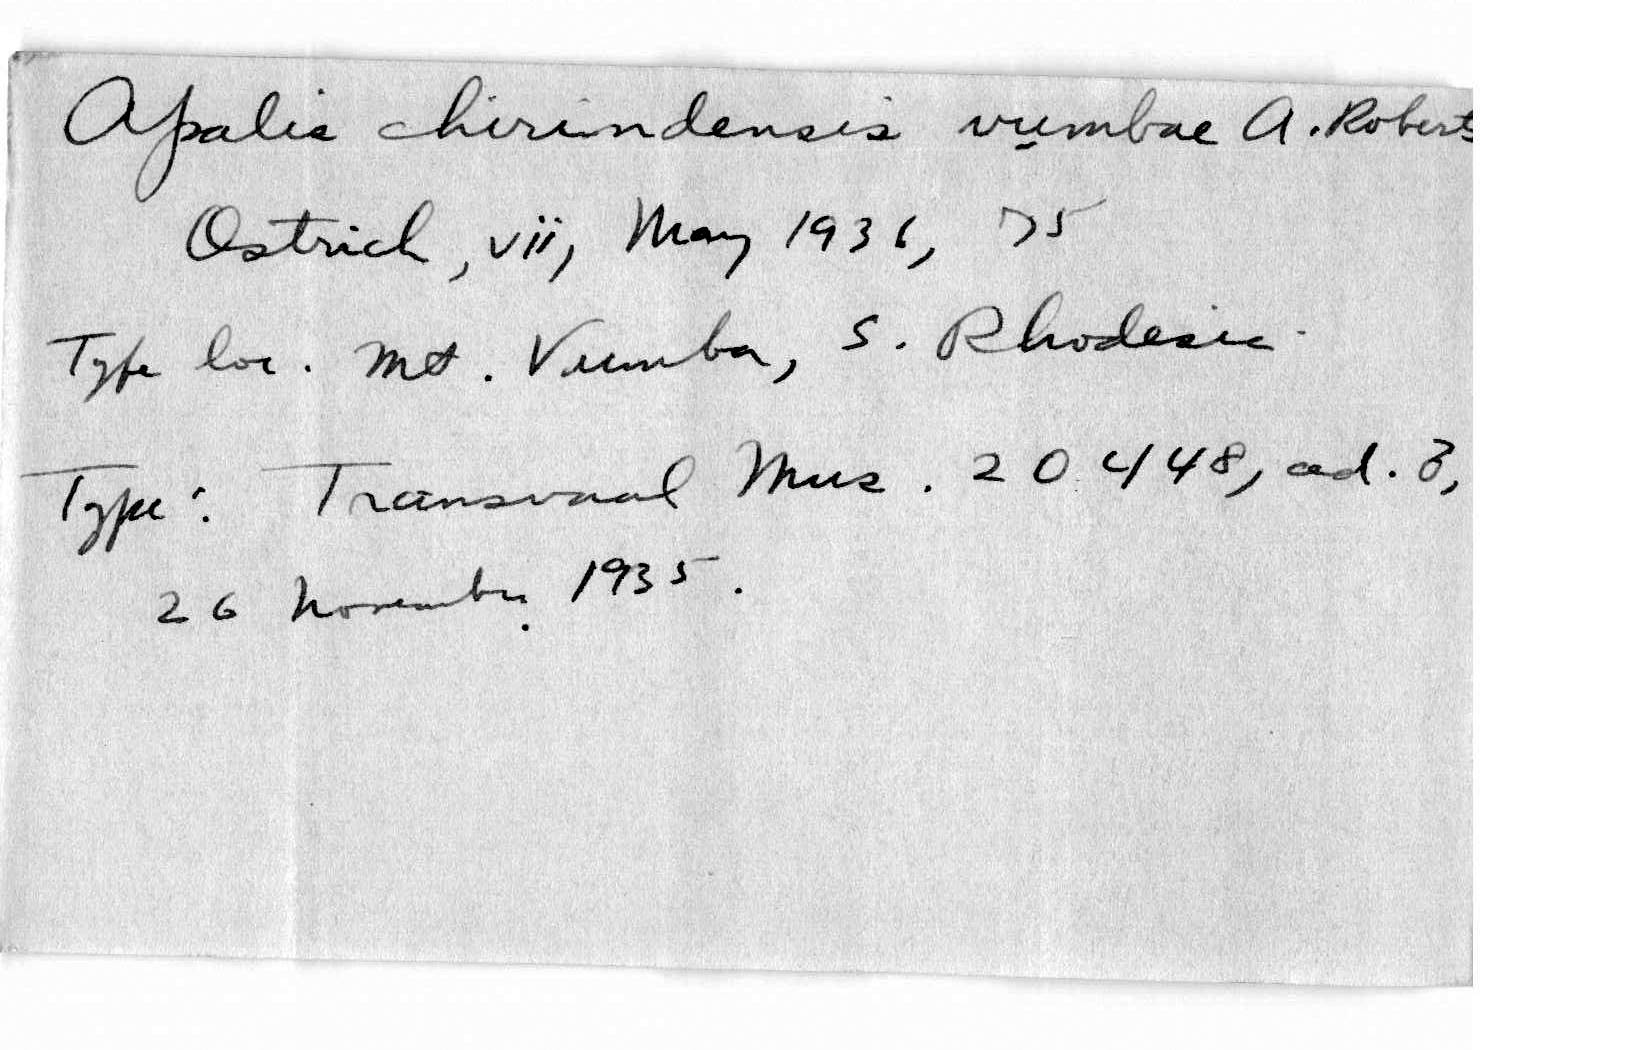 Apalis chirindensis vumbae A. Roberts
Ostrich, vii, May 1936, 75
Type loc. Mt. Vumba, S. Rhodesia.
Type: Transvaal Mus. 20448, ad. ♂,
26 November 1935.